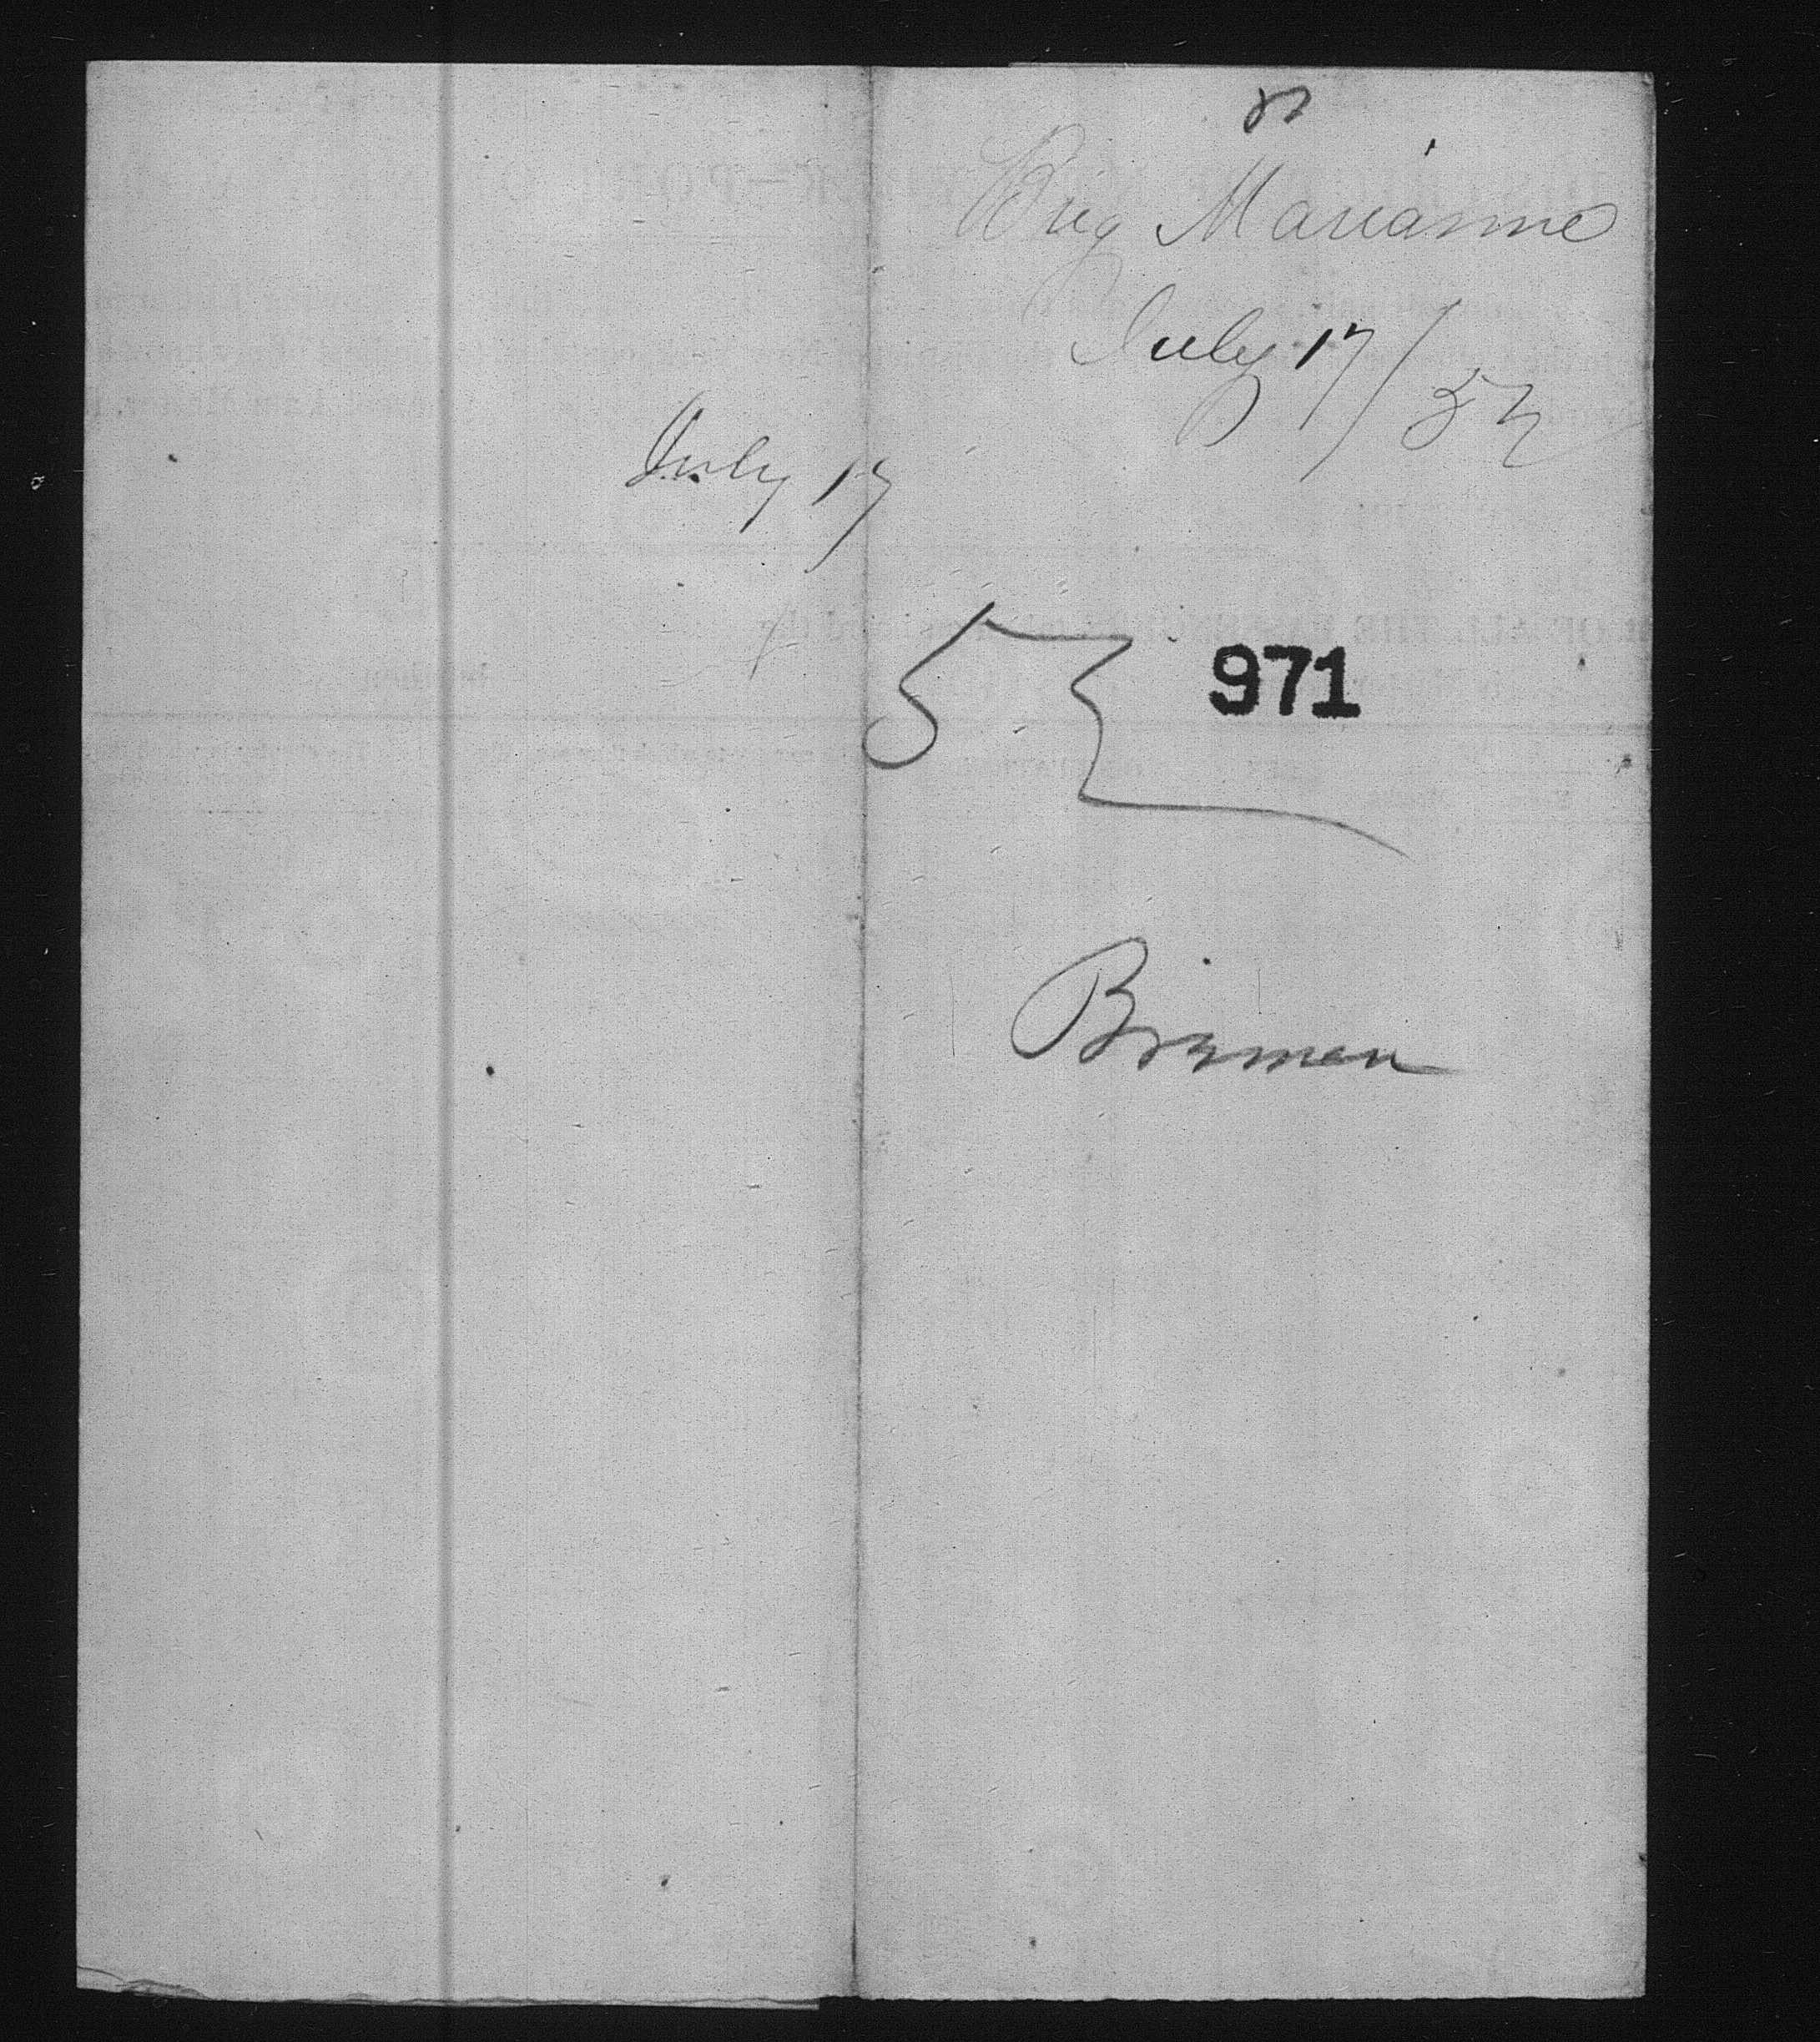 Brig Marianne
July 17/52
July 17
52
971
Bremen